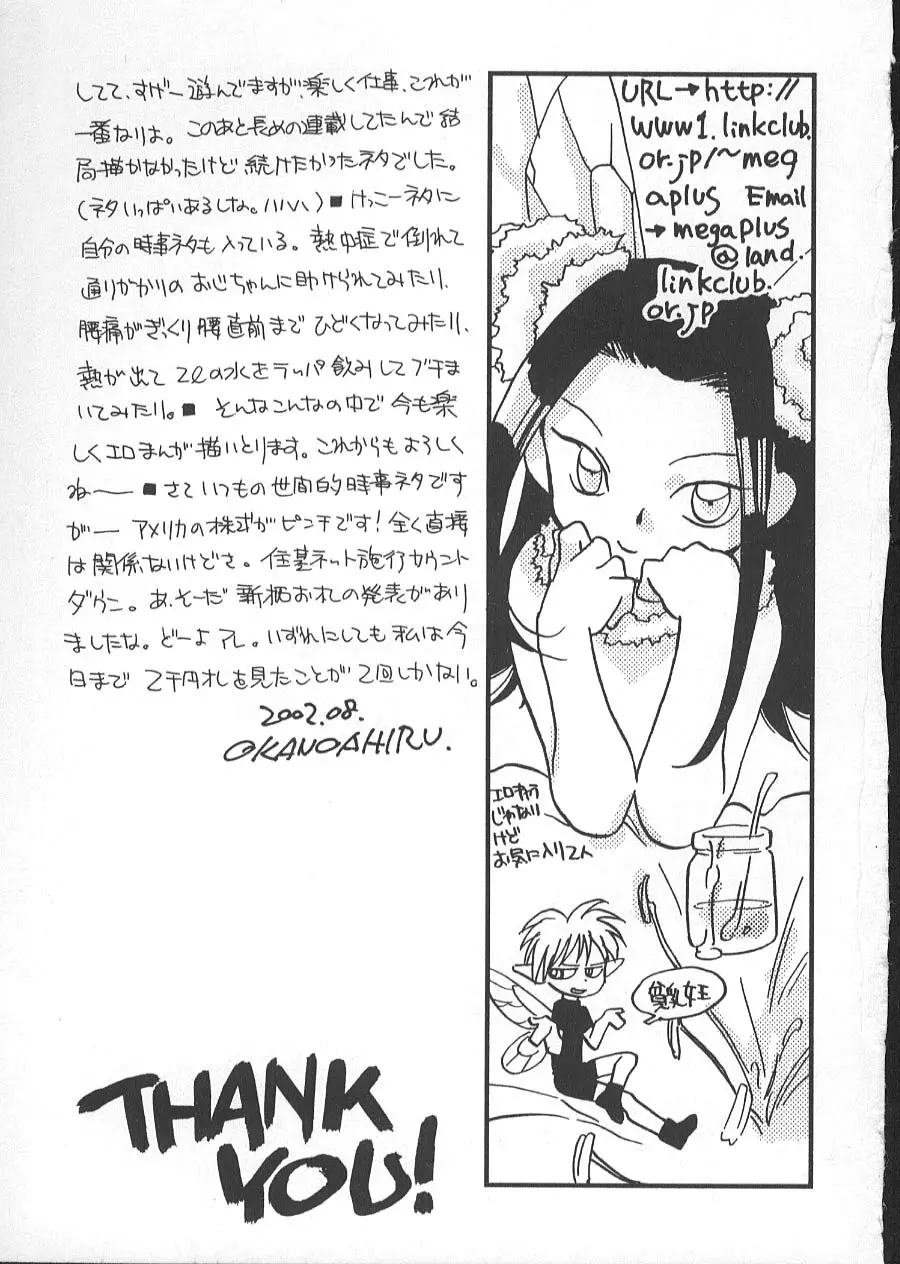 してて、すげー遊んでますが、楽しく仕事、これが
一番なりよ。このあと長めの連載してたんで結
局描かなかったけど続けたかったネタでした。
(ネタいっぱいあるしな。ハハハ、)■けっこーネタに
自分の時事ネタも入っている。熱中症で倒れて
通りかかりのおじちゃんに助けられてみたり、
腰痛がぎっくり腰直前までひどくなってみたり、
熱が出て2ℓの水をラッパ飲みしてブチま
いてみたり。■そんなこんなの中で今も楽
しくエロまんが描いとります。これからもよろしく
ね――■さていつもの世間的時事ネタです
が― アメリカの株式がピンチです!全く直接
は関係ないけどさ。住基ネット施行カウント
ダウン。あ、そーだ新柄お札の発表があり
ましたな。どーよアレ。いずれにしても私は今
日まで2千円札を見たことが2回しかない。
2002.08.
OKANOAHIRU.
URL→http://
www1.linkclub.
or.jp/~meg
aplus Email
→megaplus
@land.
linkclub.
or.jp
エロキャラ
じゃない
けど
お気に入り2人
貧乳女王
THANK
YOU!